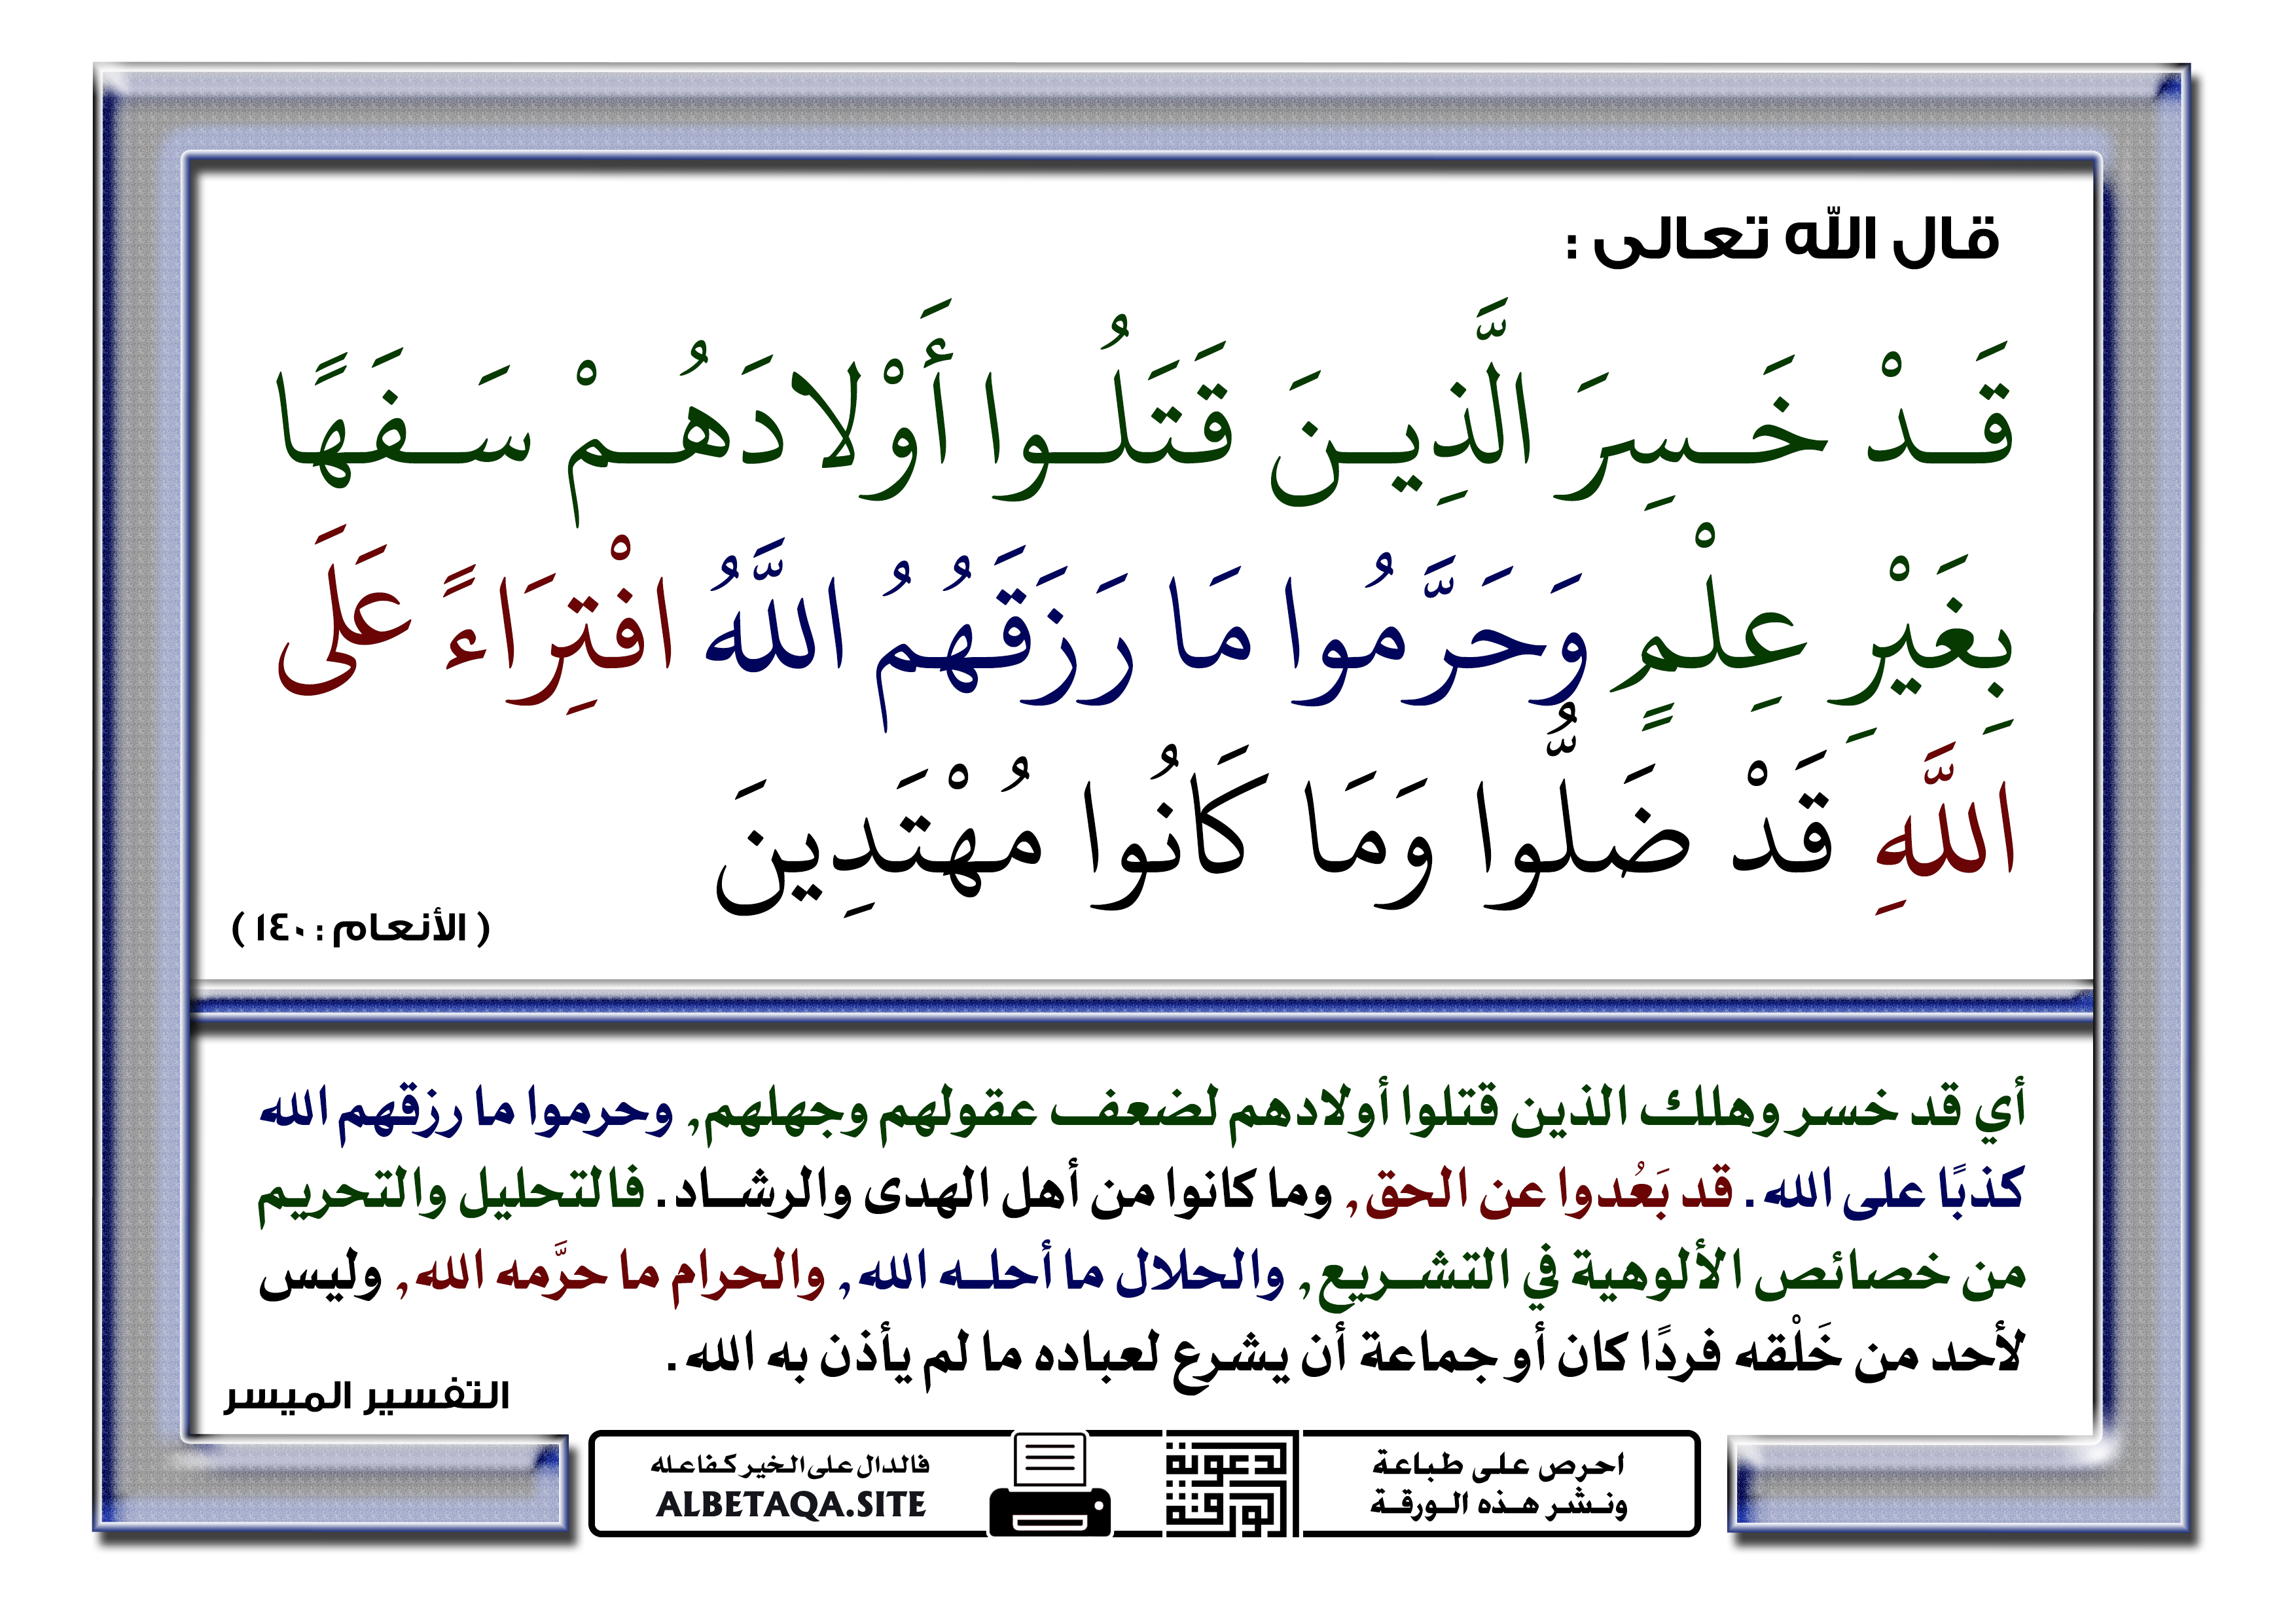 قال الله تعالى :
قَدْ خَسِرَ الَّذِينَ قَتَلُوا أَوْلادَهُمْ سَفَهًا
بِغَيْرِ عِلْمٍ وَحَرَّمُوا مَا رَزَقَهُمُ اللَّهُ افْتِرَاءً عَلَى
اللَّهِ قَدْ ضَلُّوا وَمَا كَانُوا مُهْتَدِينَ
( الأنعام : ١٤٠ )
أي قد خسر وهلك الذين قتلوا أولادهم لضعف عقولهم وجهلهم, وحرموا ما رزقهم الله
كذبًا على الله. قد بَعُدوا عن الحق, وما كانوا من أهل الهدى والرشاد. فالتحليل والتحريم
من خصائص الألوهية في التشريع, والحلال ما أحله الله, والحرام ما حرَّمه الله, وليس
لأحد من خَلْقه فردًا كان أو جماعة أن يشرع لعباده ما لم يأذن به الله.
التفسير الميسر
احرص على طباعة
ونشر هذه الورقة
الدعوية
الورقة
فالدال على الخير كفاعله
ALBETAQA.SITE